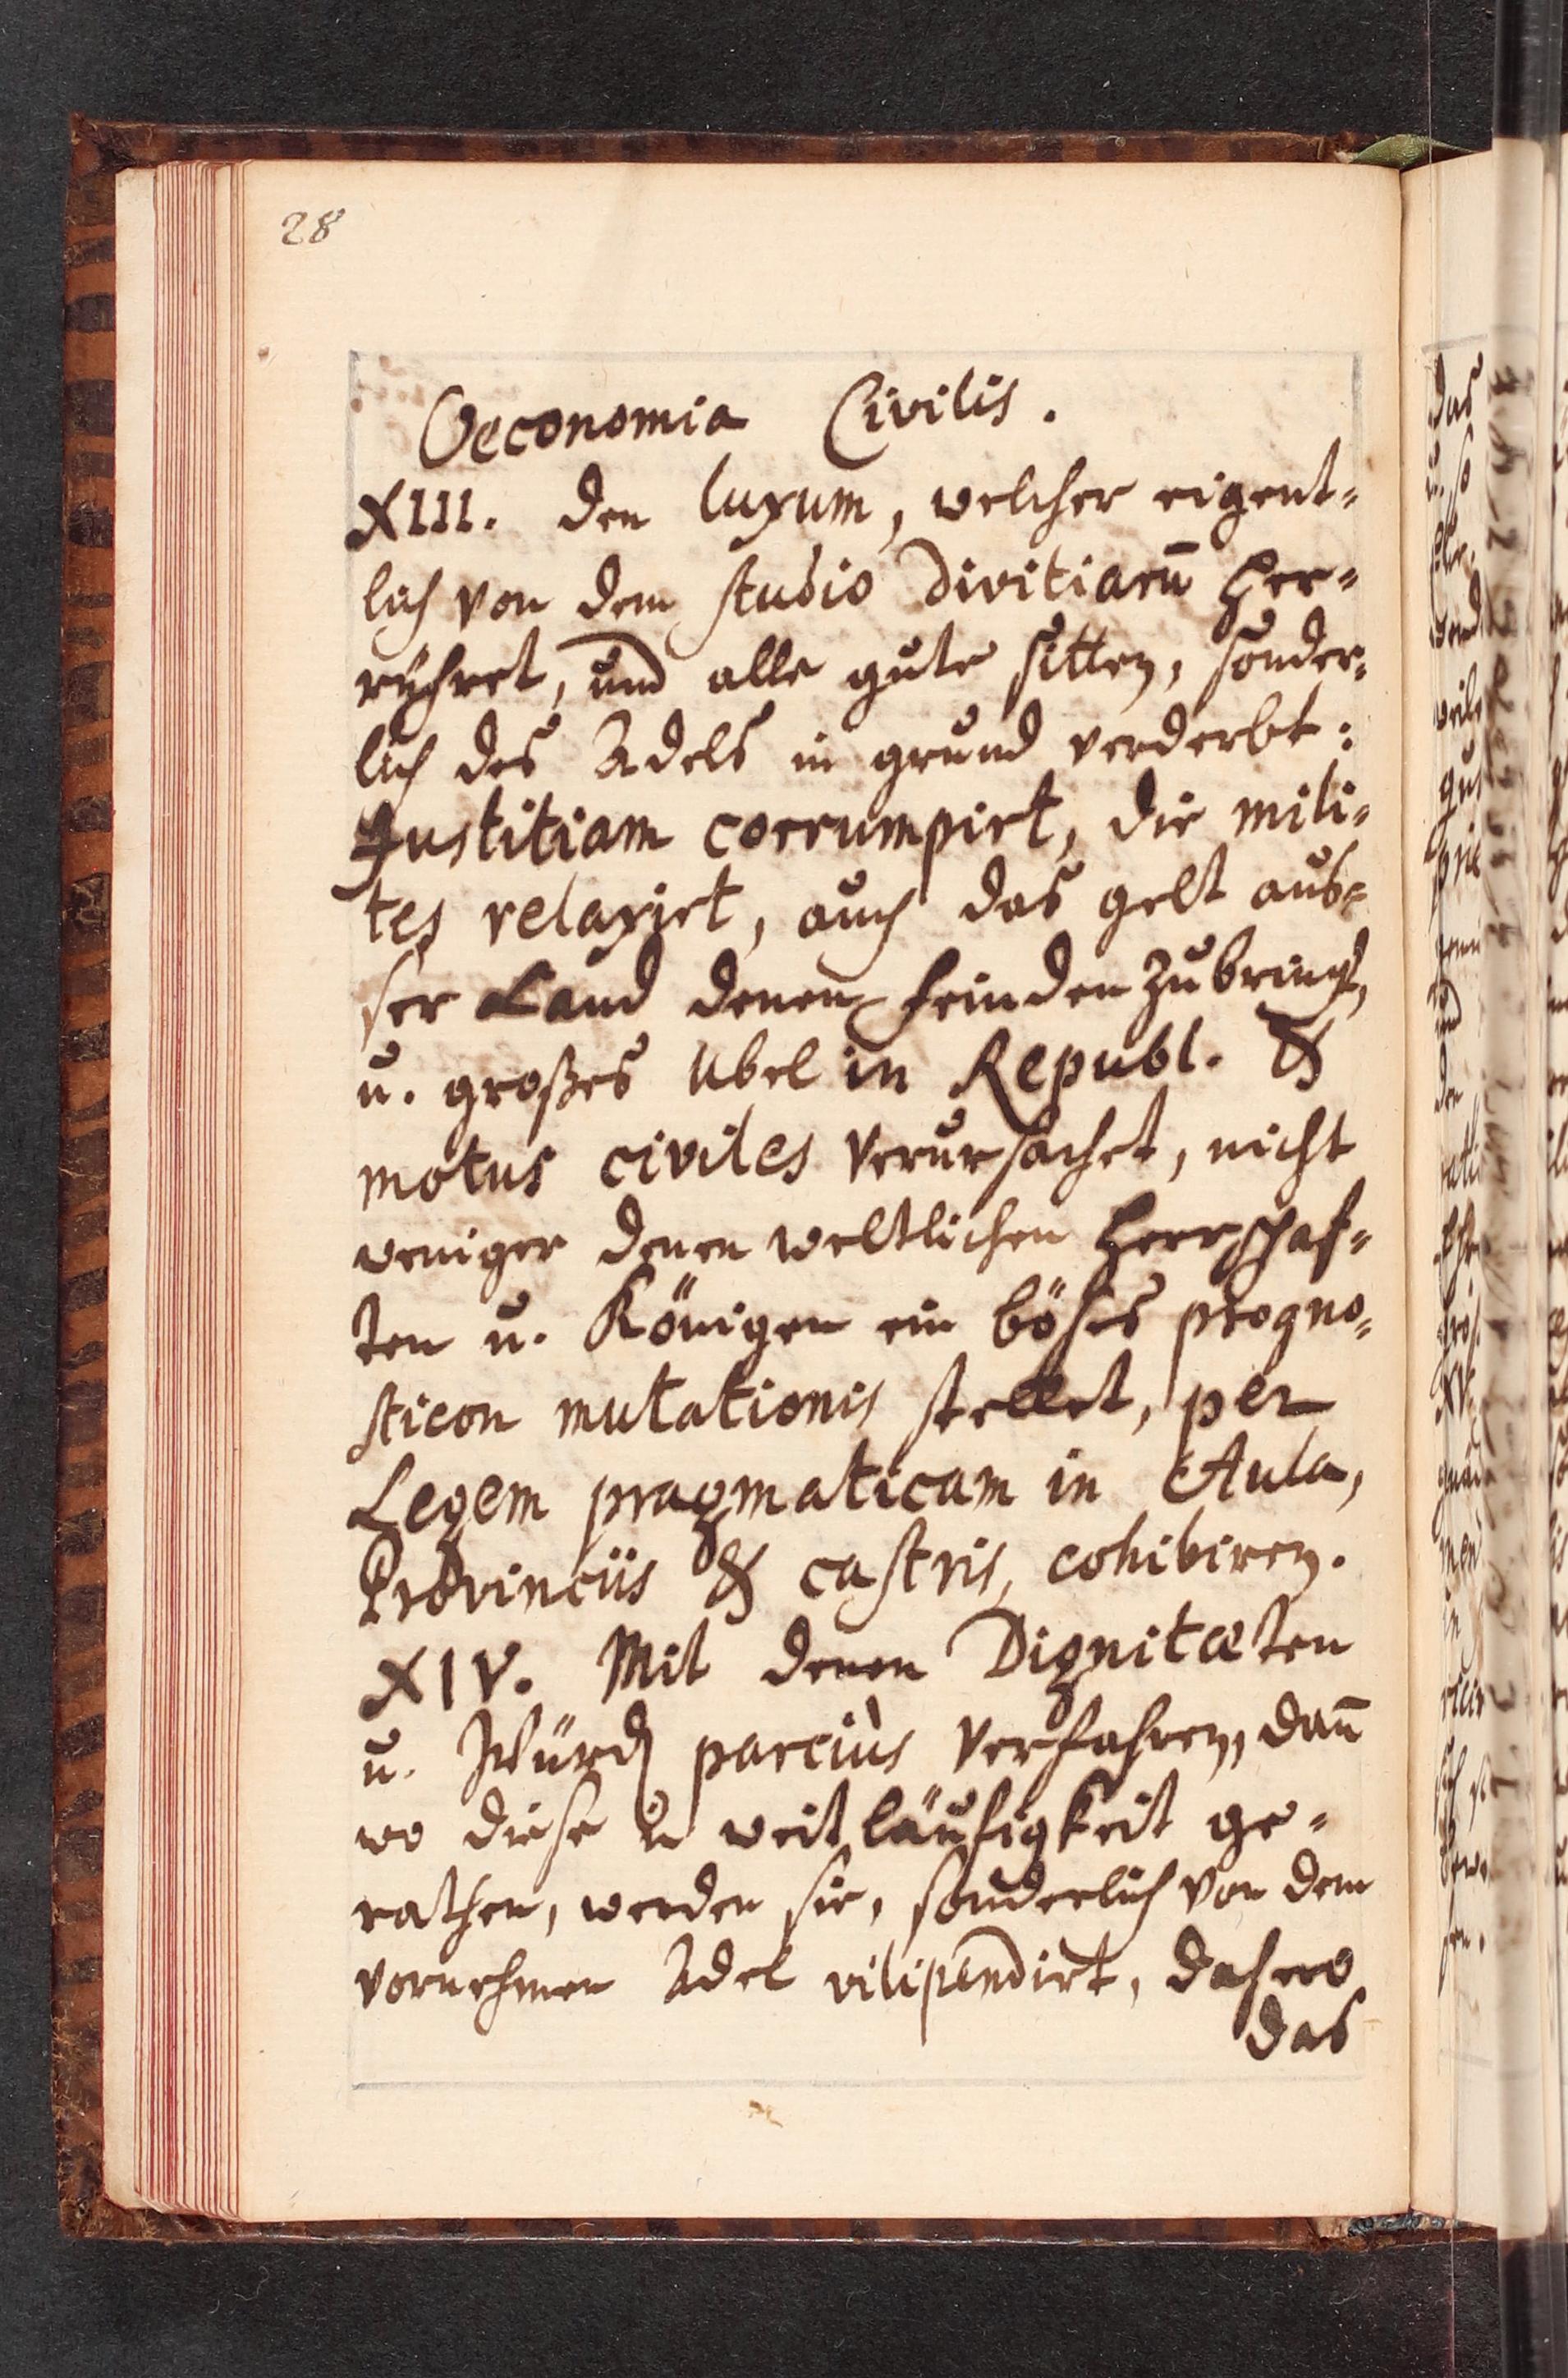 28
Oeconomia Civilis.
XIII. den luxum, welcher eigent=
lich von dem studio divitiarū her=
rühret, und alle gute sitten, sonder=
lich des Adels in grund verderbt:
Justitiam corrumpirt, die mili=
tes relaxirt, auch das gelt aus=
ser Land denen feinden zubringt,
u. großes ubel in Republ. &
motus civiles verursachet, nicht
weniger denen weltlichen Herrschaf=
ten u. Königen ein böses progno=
sticon mutationis stellet, per
Legem pragmaticam in Aula,
Provinciis & castris, cohibiren.
XIV. Mit denen Dignitæten
u. Würden parciùs verfahren, dan̄
wo diese in weitläufigkeit ge=
rathen, werden sie, sonderlich von dem
vornehmen Adel vilipendirt, dahero
das